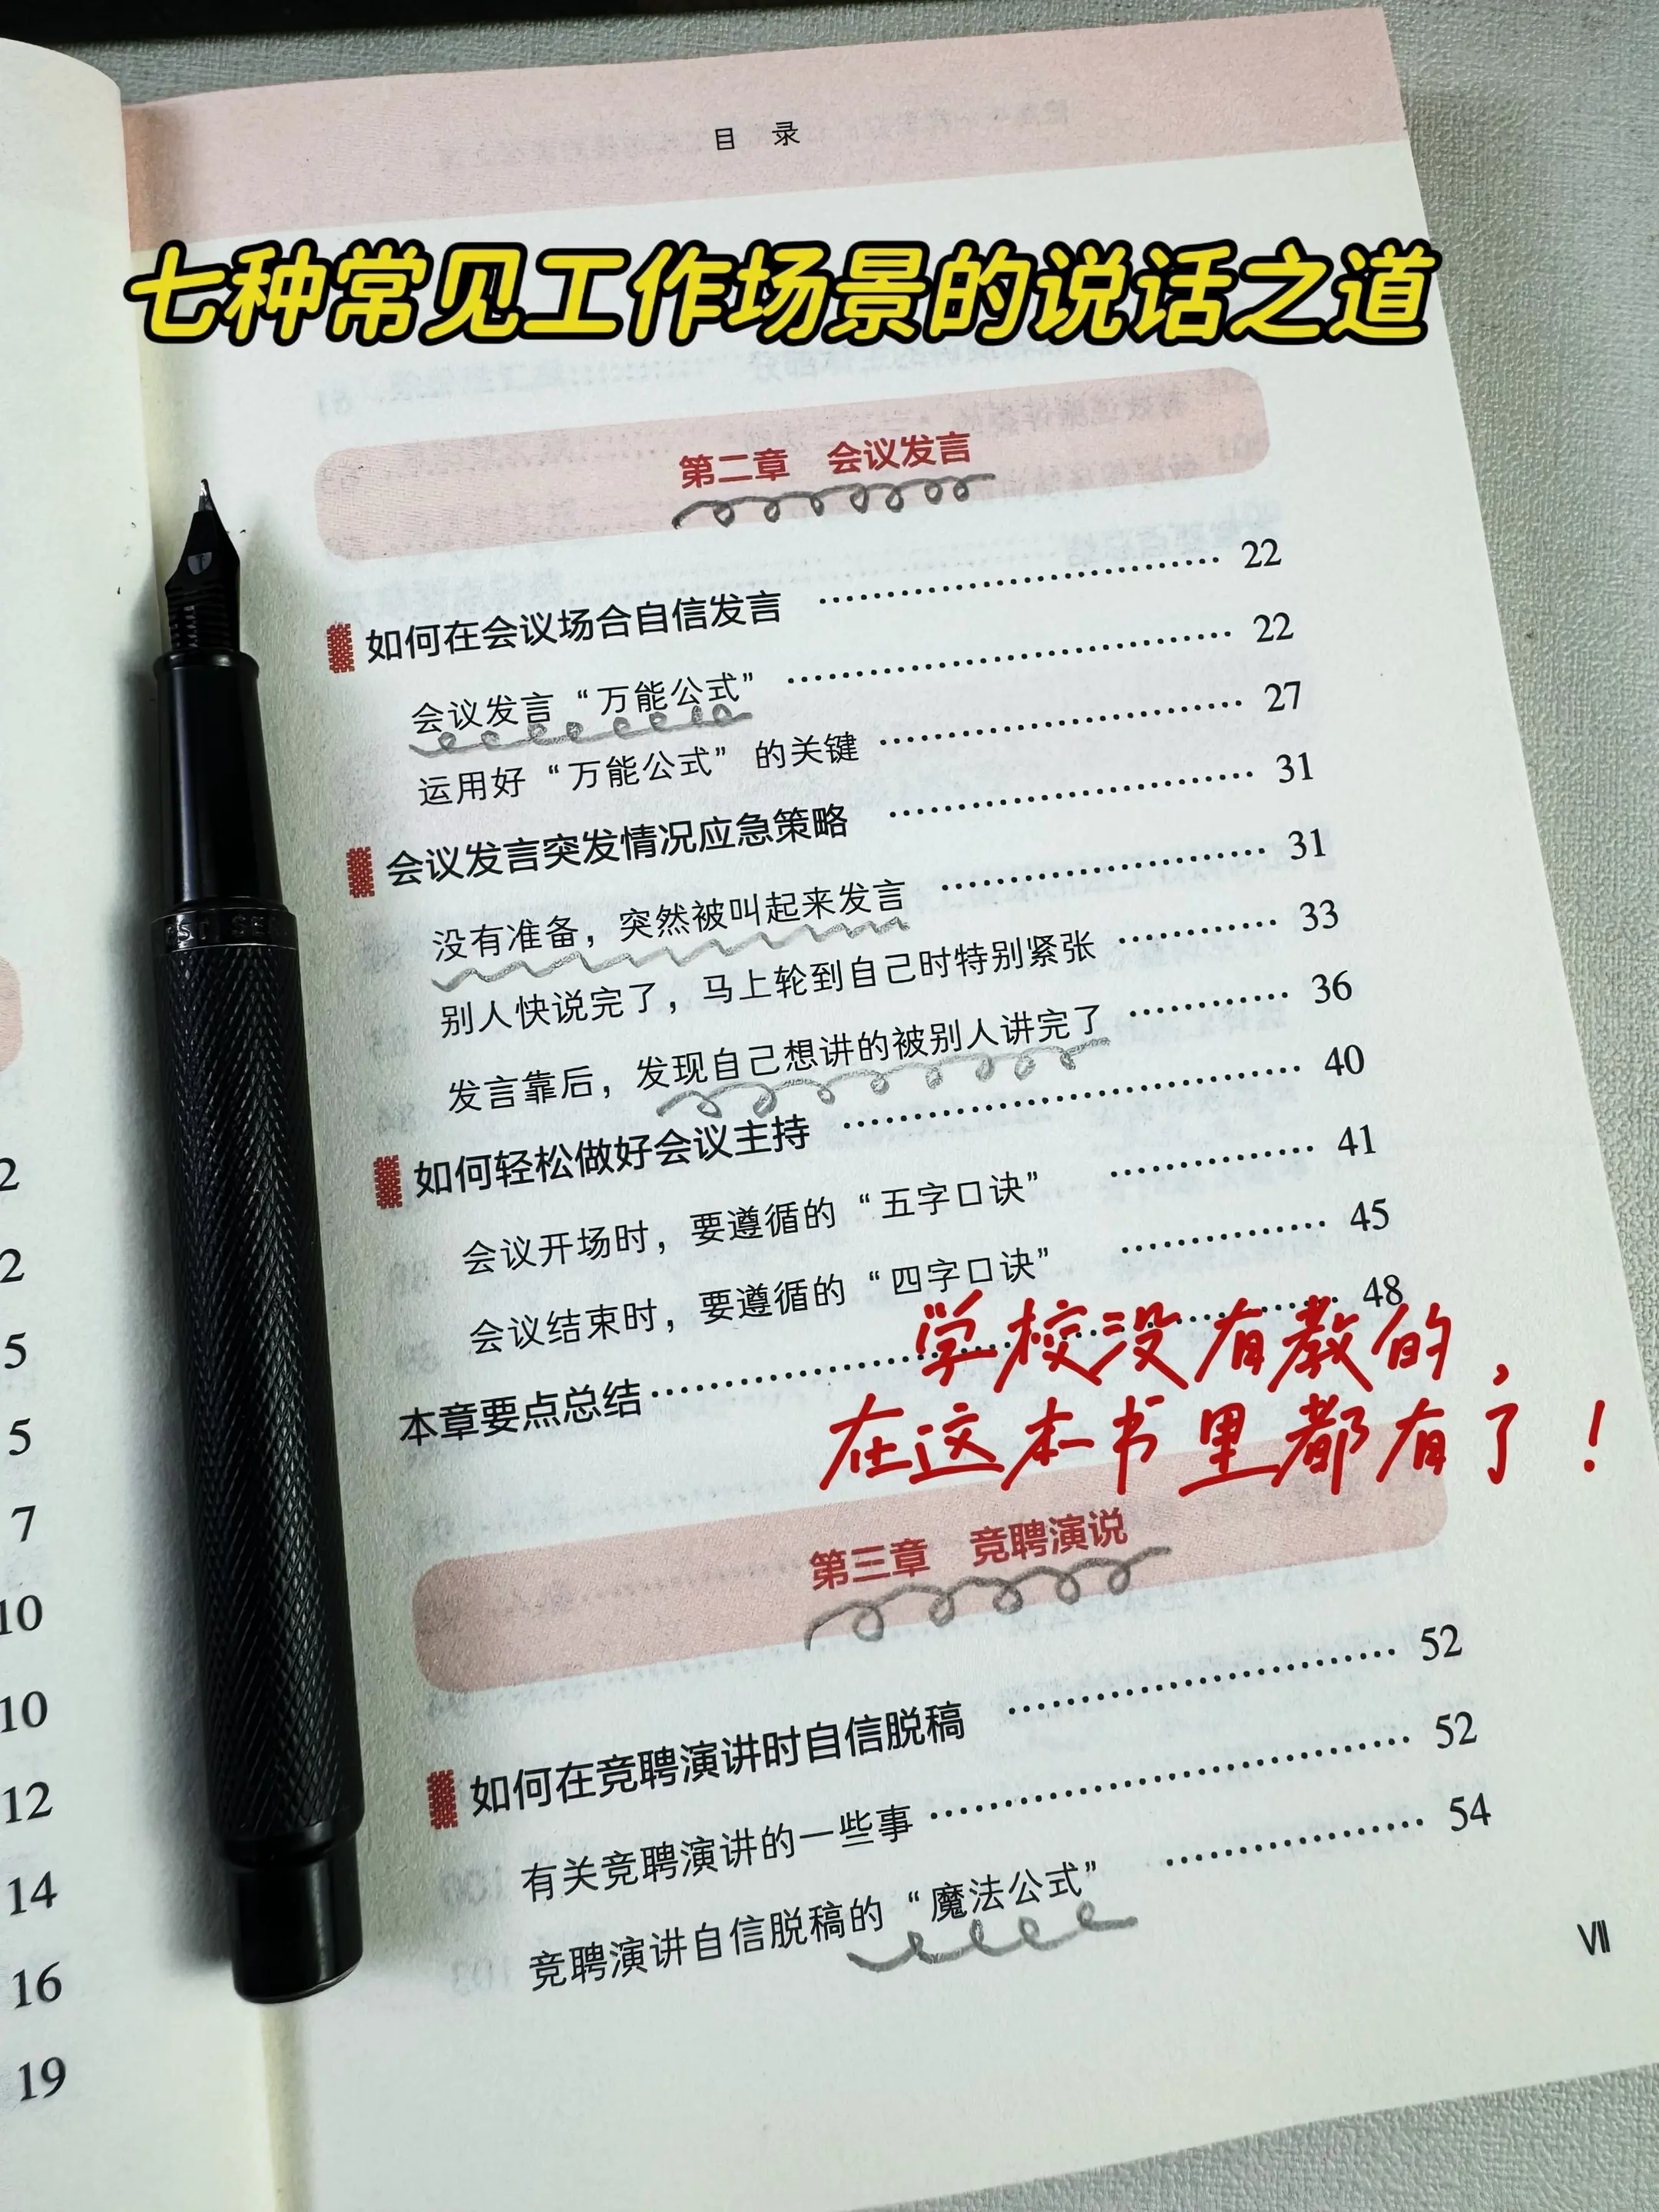 目 录
七种常见工作场景的说话之道
第二章 会议发言
如何在会议场合自信发言 …………… 22
会议发言“万能公式” …………… 22
运用好“万能公式”的关键 …………… 27
会议发言突发情况应急策略 …………… 31
没有准备，突然被叫起来发言 …………… 31
别人快说完了，马上轮到自己时特别紧张 …………… 33
发言靠后，发现自己想讲的被别人讲完了 …………… 36
如何轻松做好会议主持 …………… 40
会议开场时，要遵循的“五字口诀” …………… 41
会议结束时，要遵循的“四字口诀” …………… 45
本章要点总结 …………… 48
学校没有教的，
在这本书里都有了！
第三章 竞聘演说
如何在竞聘演讲时自信脱稿 …………… 52
有关竞聘演讲的一些事 …………… 52
竞聘演讲自信脱稿的“魔法公式” …………… 54
VII
2
2
5
5
7
10
10
12
14
16
19